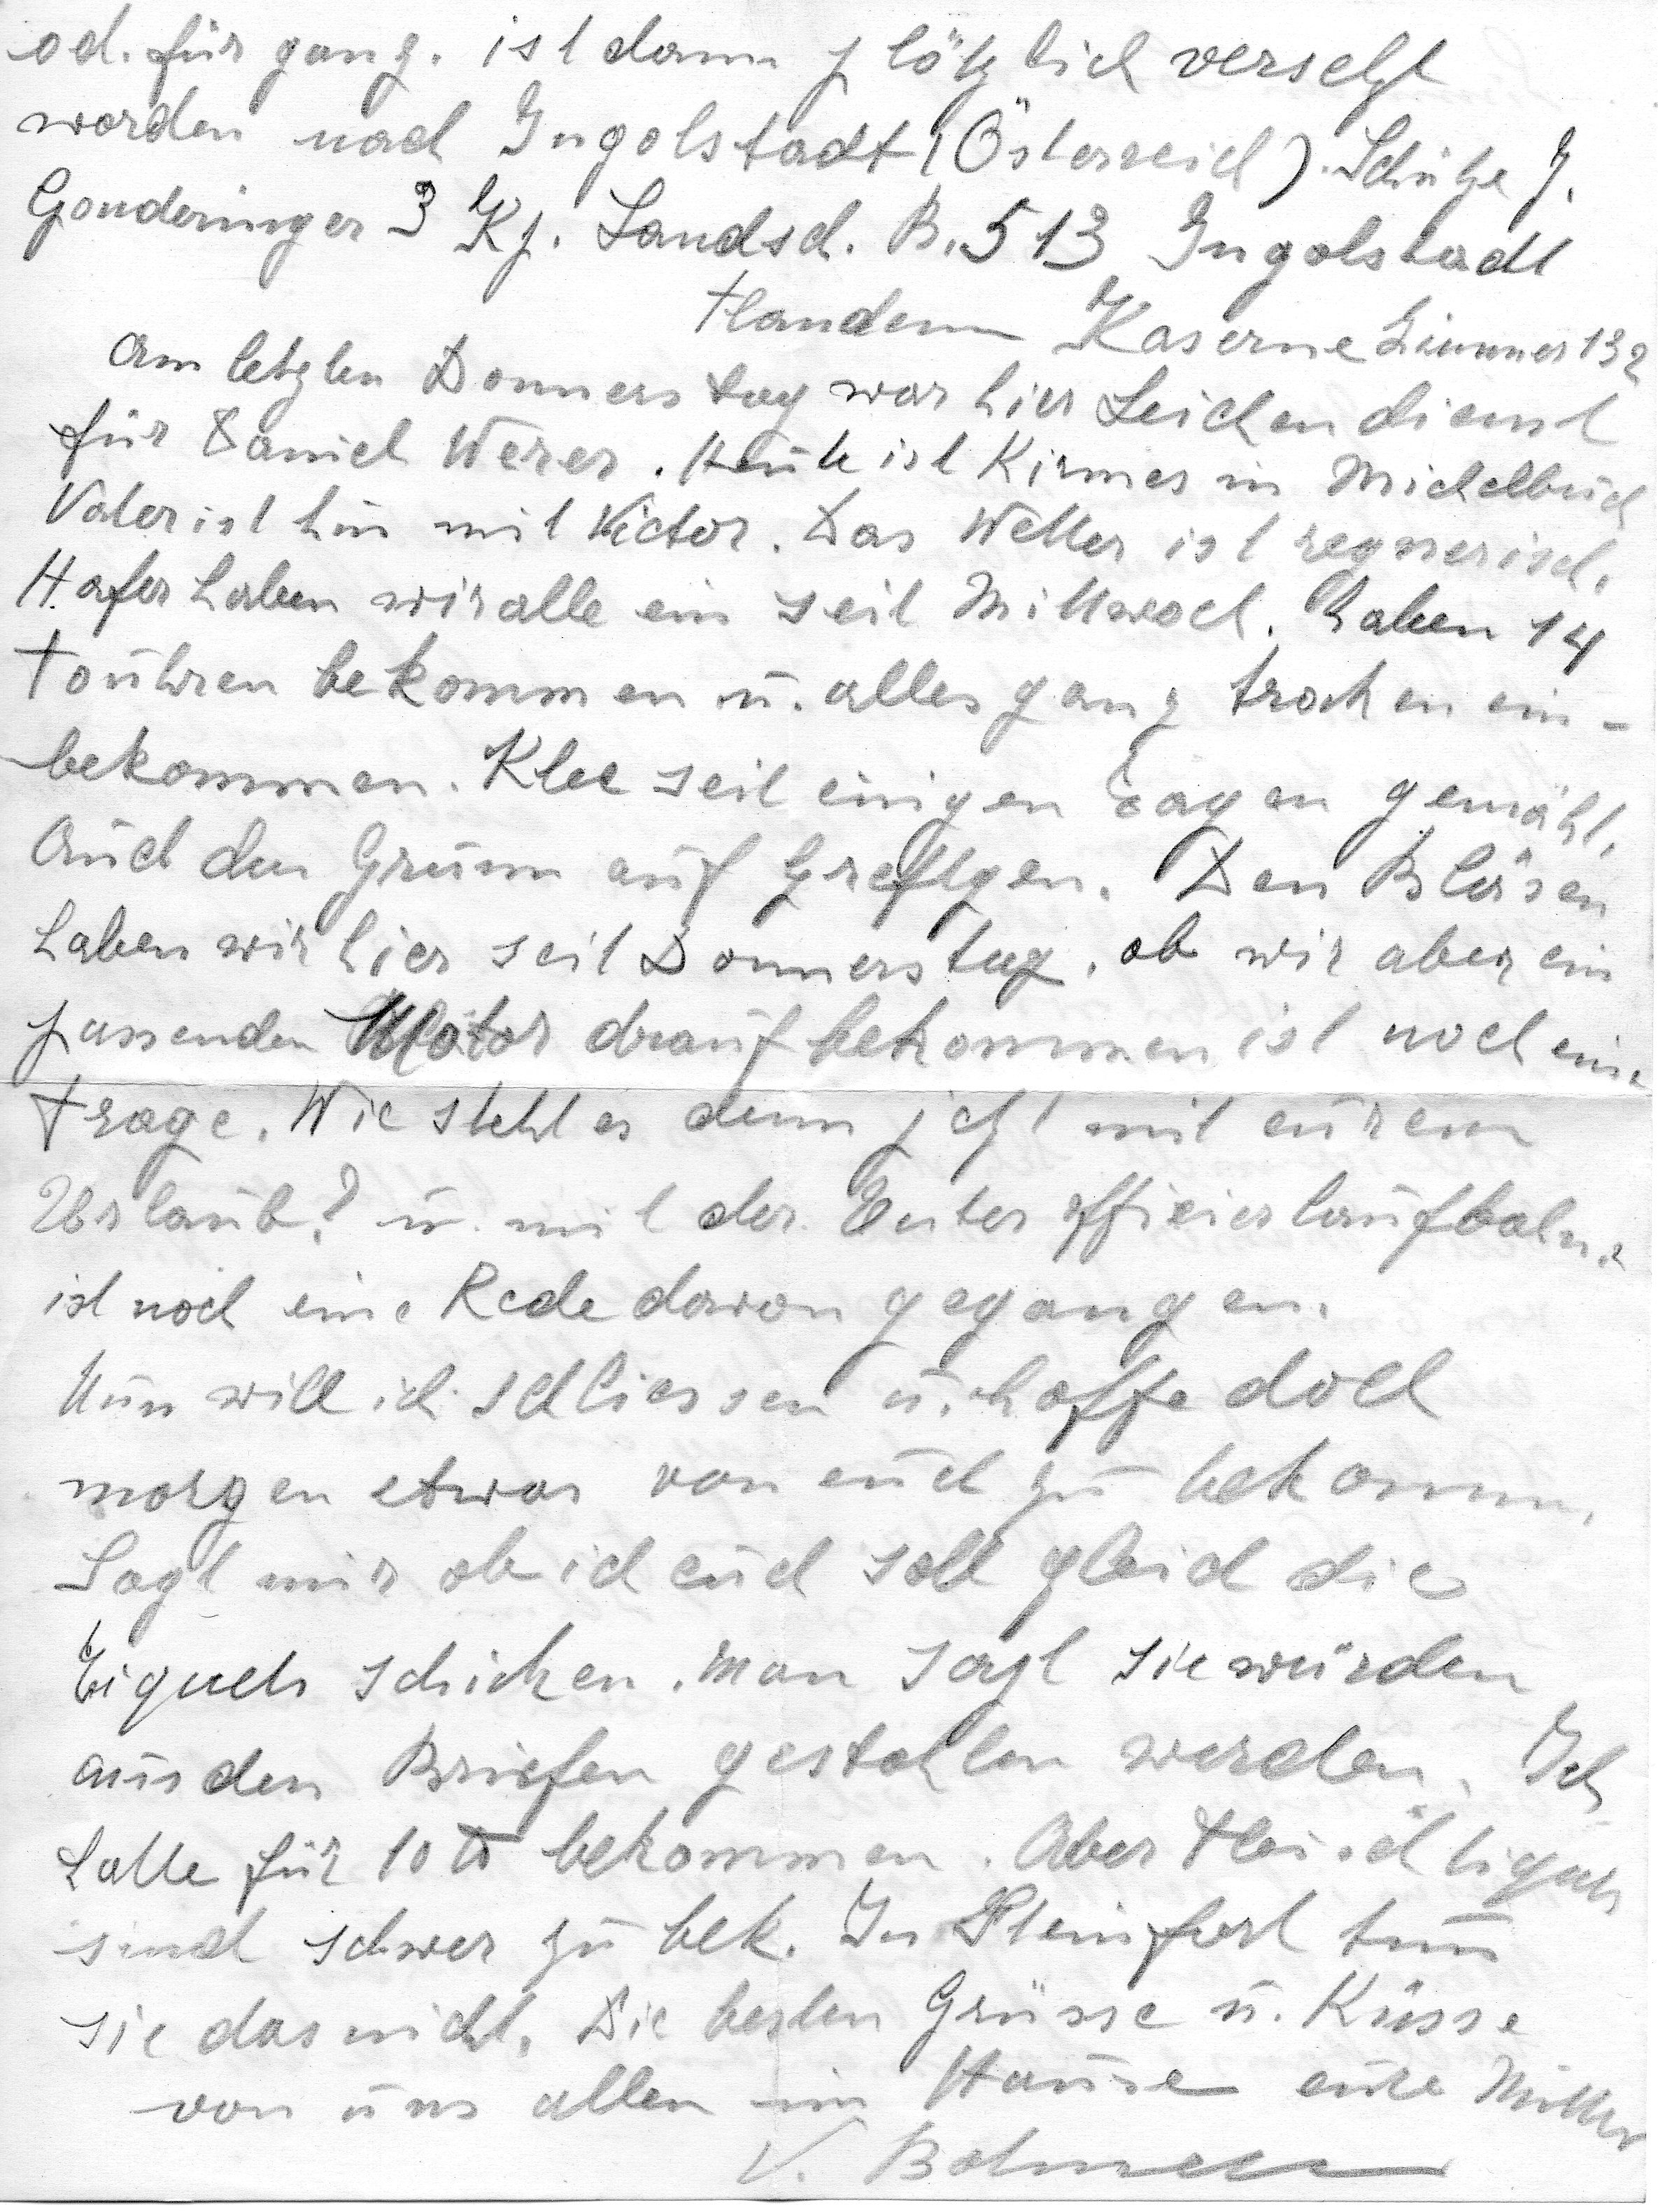 od. für ganz. ist dann plötzlich versetzt
worden nach Ingolstadt (Österreich). Schütze J.
Gonderinger 3 Kp. Landsch. B. 513 Ingolstadt
Flandern Kaserne Zimmer 132
Am letzten Donnerstag war hier Leichendienst
für Daniel Werer. Heute ist Kirmes in Michelbuch
Vater ist hin mit Victor. Das Wetter ist regnerisch.
Hafer haben wir alle ein seit Mittwoch. haben 14
Fouhren bekommen u. alles ganz trocken ein-
bekommen. Klee seit einigen Tagen gemäht,
Auch den Grumm auf Greftgen. Den Bläsen
haben wir hier seit Donnerstag, ob wir aber ein
passenden Motor drauf bekommen ist noch eine
Frage. Wie steht es denn jetzt mit eurem
Urlaub? u. mit der Unterofficierlaufbahn.
ist noch eine Rede davon gegangen.
Nun will ich schliessen u. hoffe doch
morgen etwas von euch zu bekomm.
Sagt mir ob ich euch soll gleich die
Tiquets schicken. man sagt sie würden
aus den Briefen gestohlen werden. Ich
hatte für 10 ℔ bekommen. Aber Fleischtiquets
sind schwer zu bek. In Steinfort tun
sie das nicht. Die besten Grüsse u. Küsse
von uns allen im Hause eure Mutter
V. Bohmer